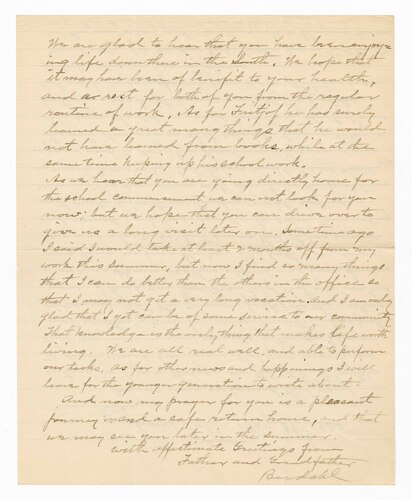 We are glad to hear that you have been enjoy=
ing life down there in the South. We hope that
it may have been of benefit to your health,
and a rest for both of you from the regular
routine of work. As for Fritjof he has surely
learned a great many things that he would
not have learned from books, while at the
same time keeping up his school work.
As we hear that you are going directly home for
the school commencement we can not look for you
now; but we hope that you can drive over to
give us a long visit later one. Sometime ago
I said I would take at least 2 months off from my
work this summer, but now I find so many things
that I can do better than the others in the office so
that I may not get a very long vacation. And I am only
glad that I yet can be of some service to our community
That knowledge is the only thing that makes life worth
living. We are all real well, and able to perform
our tasks, as for other news and happenings I will
leave for the younger generation to write about.
And now my prayer for you is a pleasant
journey and a safe return home, and that
we may see you later in the summer.
With affectionate Greetings from
Father and Grandfather
Berdahl